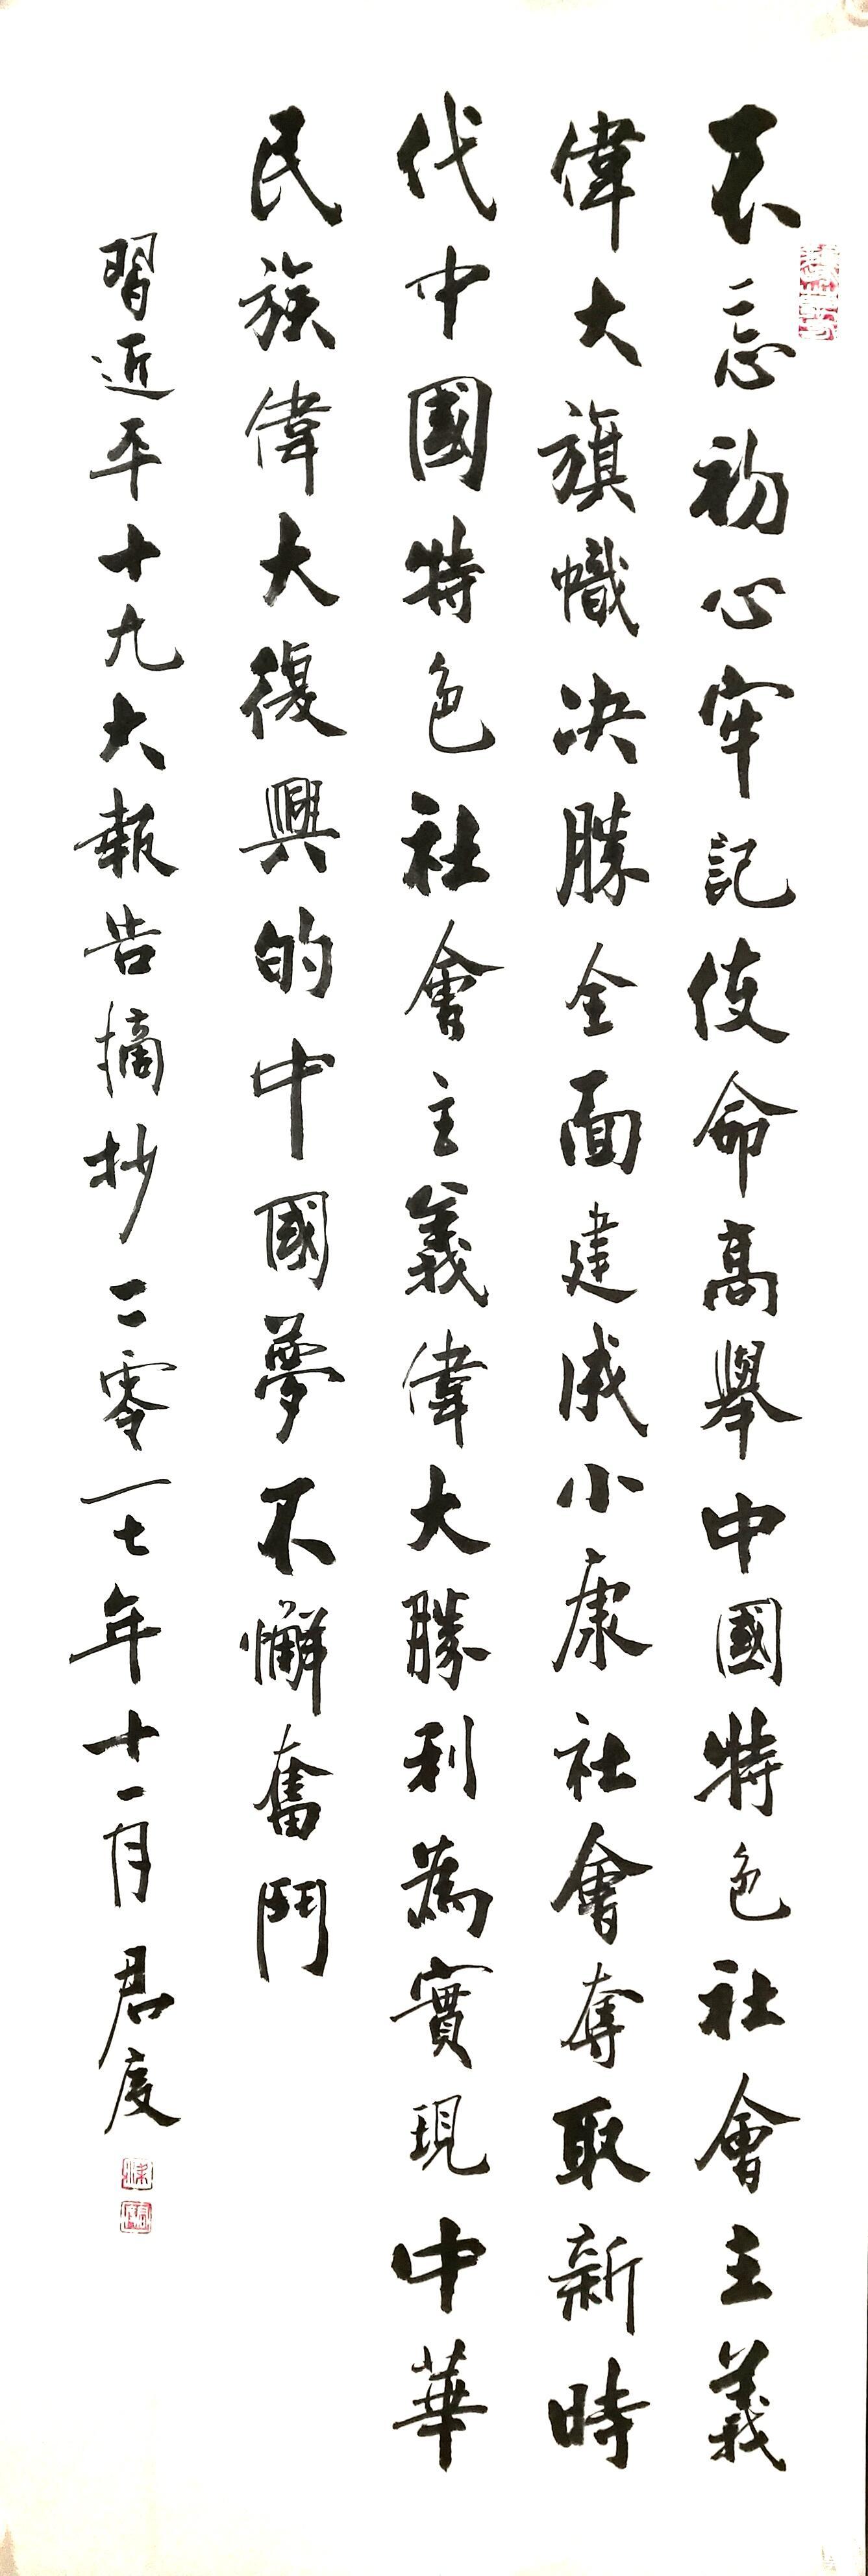 不忘初心牢記使命高舉中國特色社會主義
偉大旗幟决勝全面建成小康社會奪取新時
代中國特色社會主義偉大勝利為實現中華
民族偉大復興的中國夢不懈奮鬥
習近平十九大報告摘抄二零一七年十一月君度